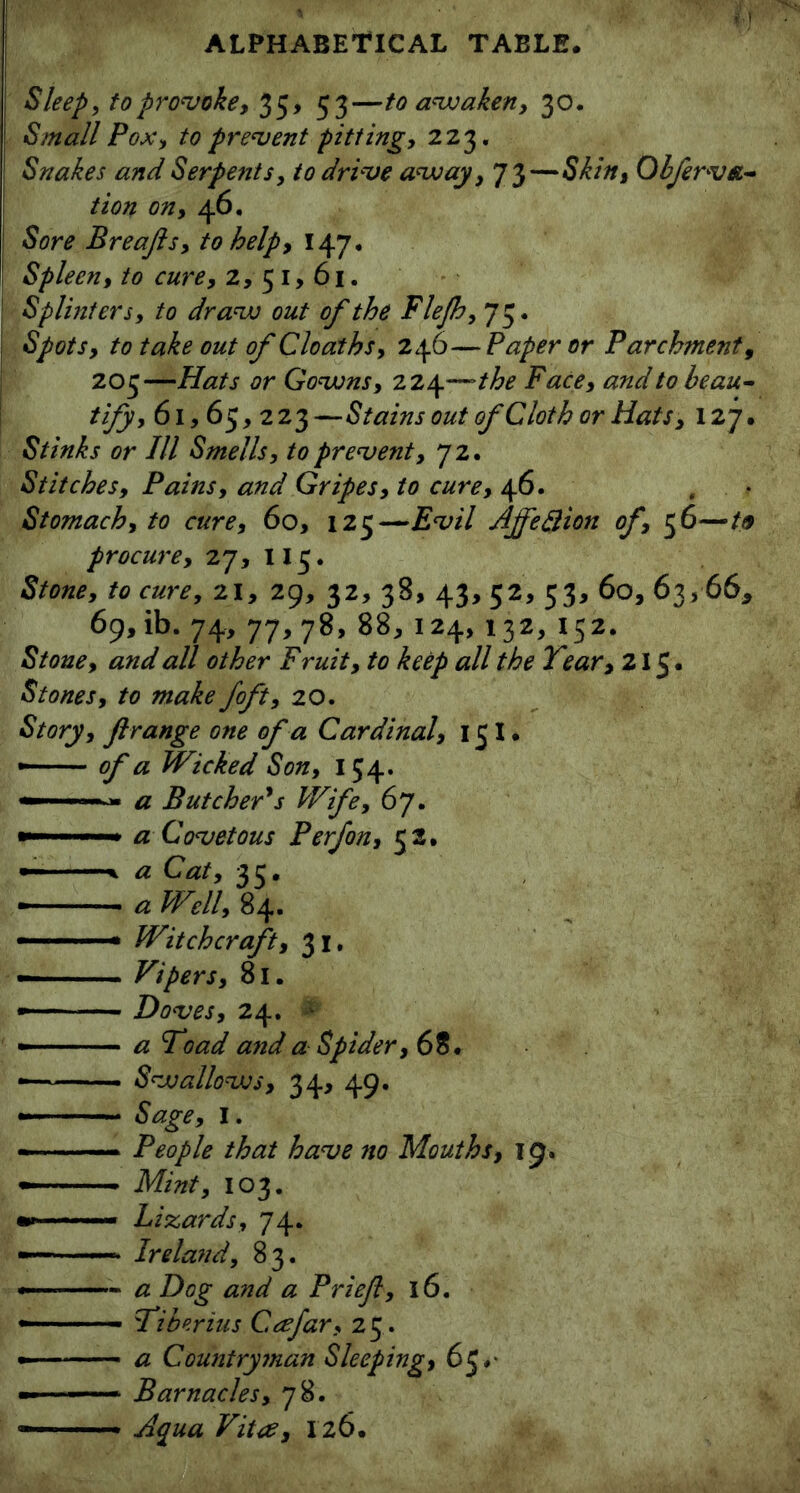 ALPHABETICAL TABLE.
Sleep, to provoke, 35, 53—to awaken, 30.
Small Pox, to prevent pitting, 223.
Snakes and Serpents, to drive away, 73—Skin, Obſerva-
tion on, 46.
Sore Breaſts, to help, 147.
Spleen, to cure, 2, 51, 61.
Splinters, to draw out of the Fleſh, 75.
Spots, to take out of Cloaths, 246—Paper or Parchment,
205—Hats or Gowns, 224—the Face, and to beau-
tify, 61, 65, 223—Stains out of Cloth or Hats, 127.
Stinks or Ill Smells, to prevent, 72.
Stitches, Pains, and Gripes, to cure, 46.
Stomach, to cure, 60, 125—Evil Affection of, 56—to
procure, 27, 115.
Stone, to cure, 21, 29, 32, 38, 43, 52, 53, 60, 63, 66,
69, ib. 74, 77, 78, 88, 124, 132, 152.
Stone, and all other Fruit, to keep all the Year, 215.
Stones, to make ſoft, 20.
Story, ſtrange one of a Cardinal, 151.
—— of a Wicked Son, 154.
——— a Butcher's Wife, 67.
——— a Covetous Perſon, 52.
——— a Cat, 35.
——— a Well, 84.
——— Witchcraft, 31.
——— Vipers, 81.
——— Doves, 24.
——— a Toad and a Spider, 68.
——— Swallows, 34, 49.
——— Sage, 1.
——— People that have no Mouths, 19.
——— Mint, 103.
——— Lizards, 74.
——— Ireland, 83.
——— a Dog and a Prieſt, 16.
——— Tiberius Cæſar, 25.
——— a Countryman Sleeping, 65.
——— Barnacles, 78.
——— Aqua Vitæ, 126.